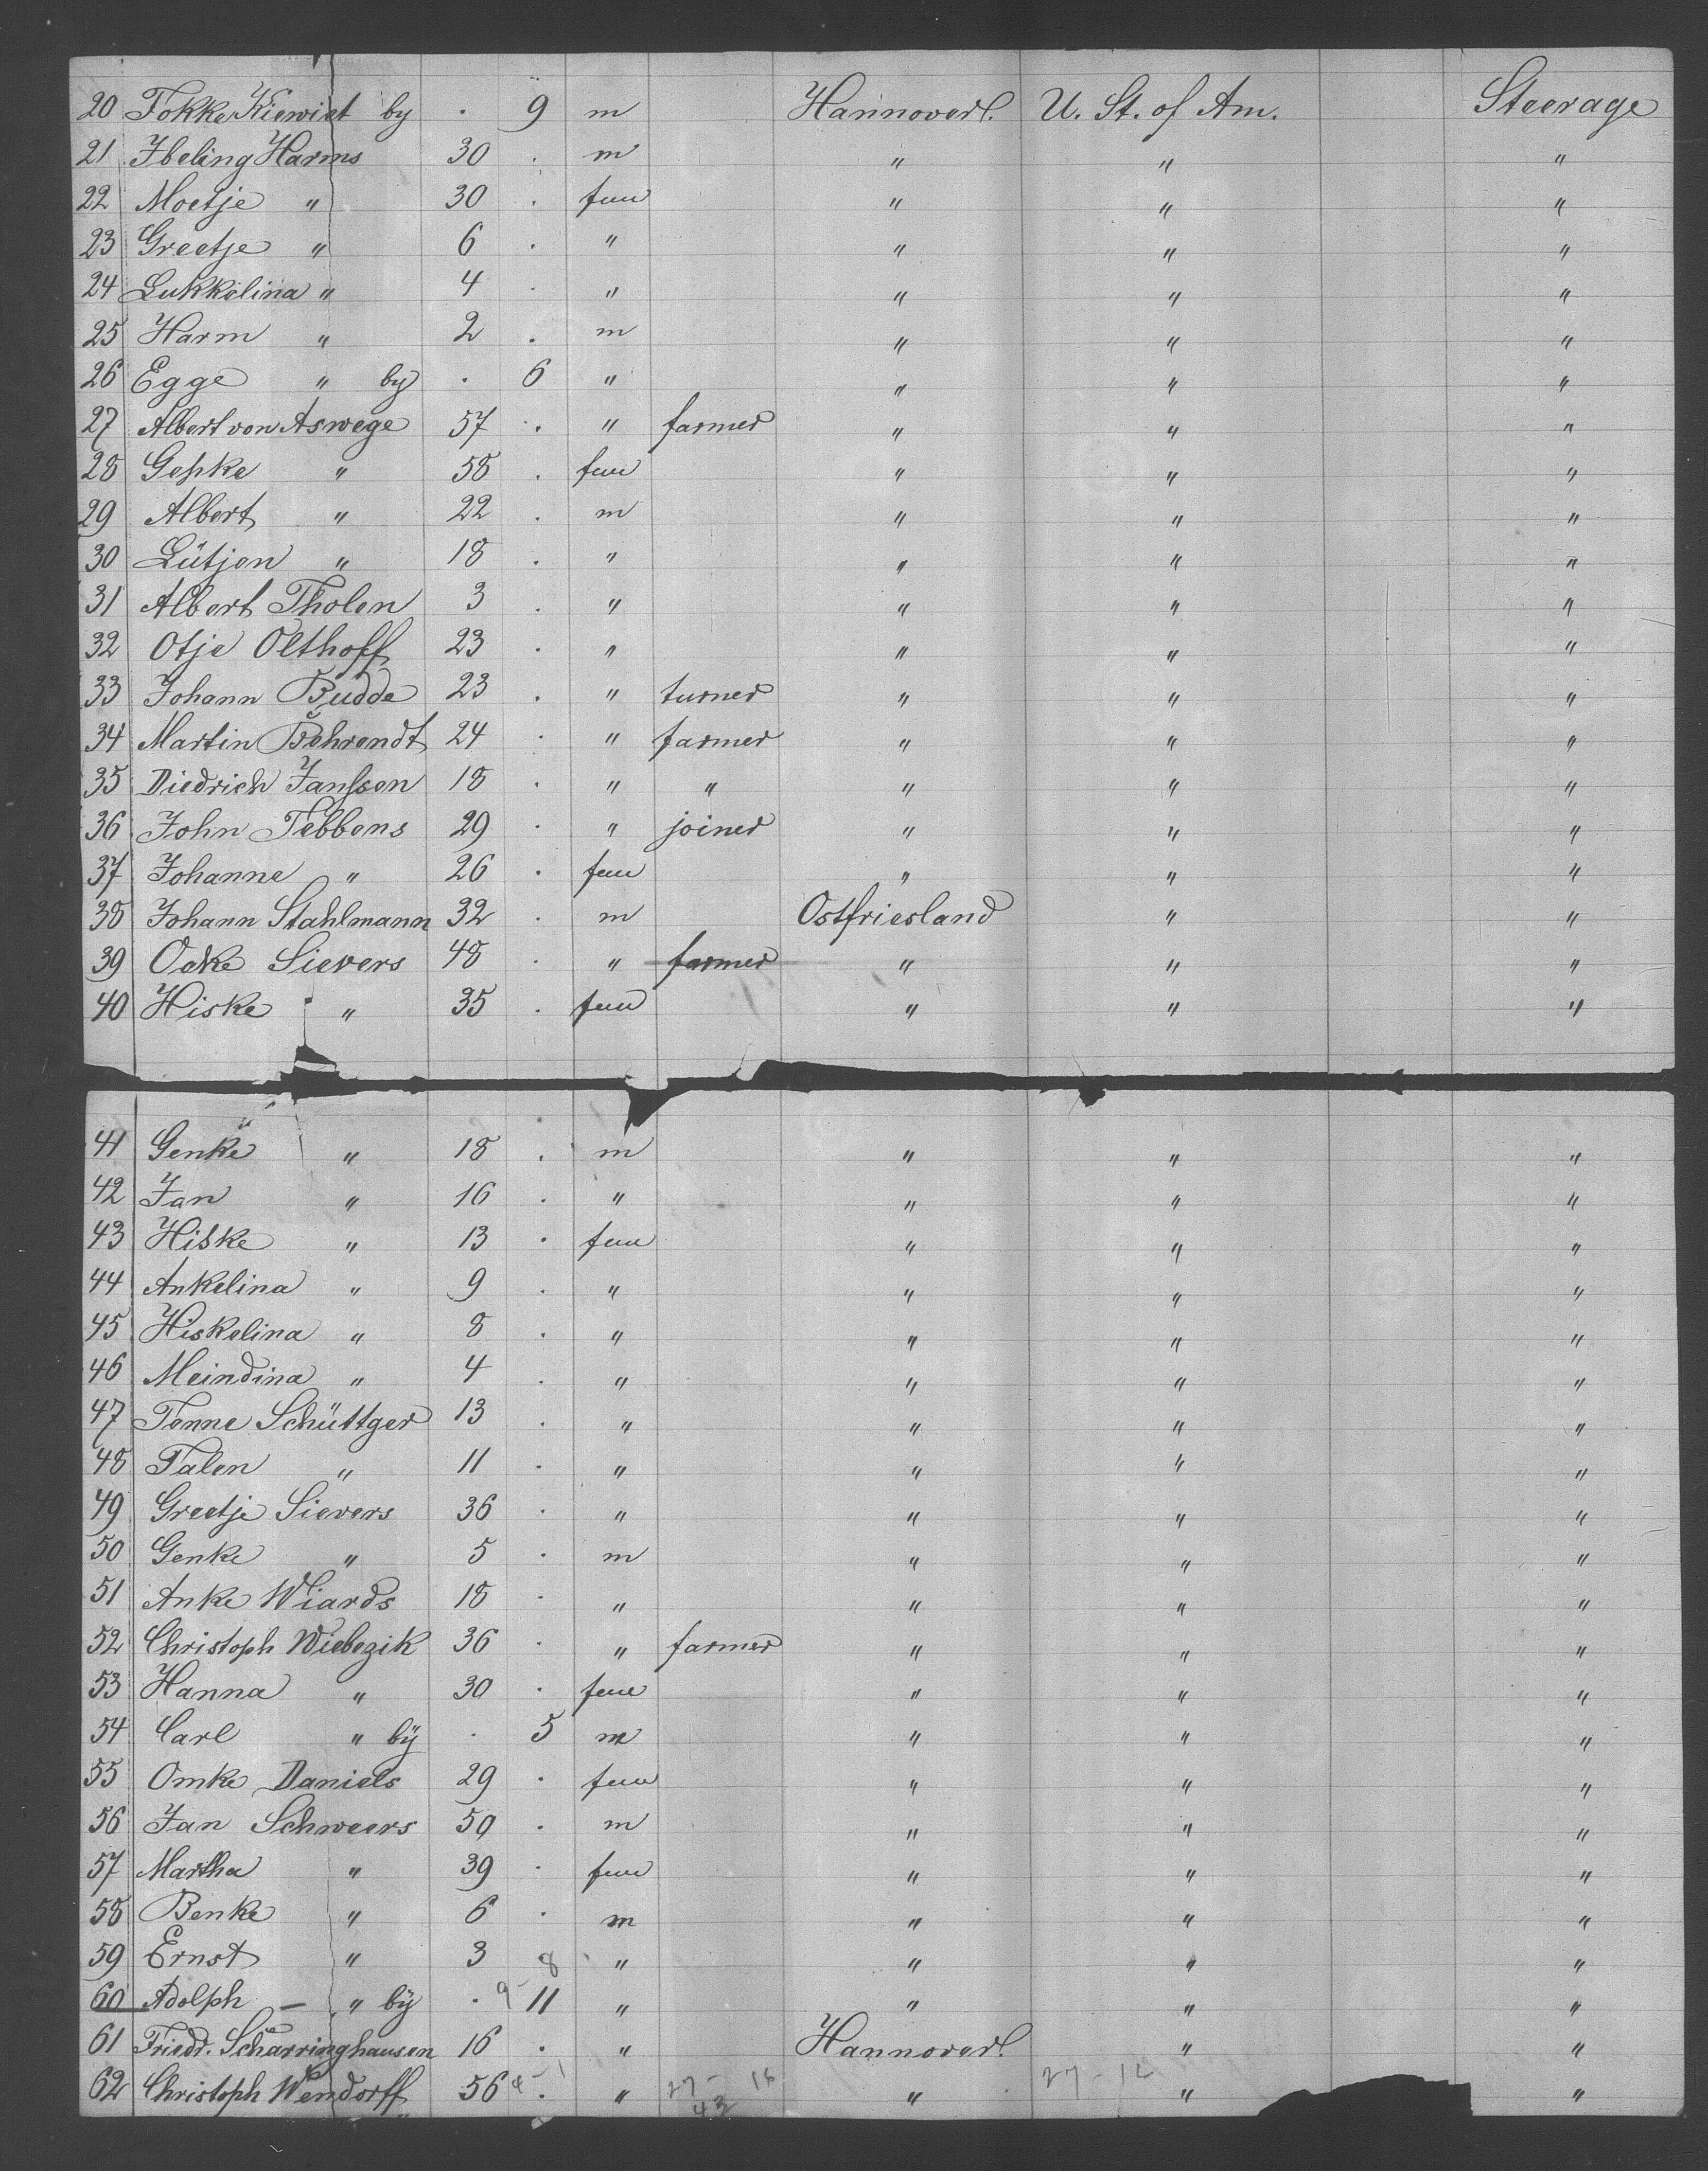 20 Fokke Kiewiet by . 9 m Hannoverl. U. St. of Am. Steerage
21 Ibeling Harms 30 . m " " "
22 Moetje " 30 . fem " " "
23 Greetje " 6 . " " " "
24 Lukkelina " 4 . " " " "
25 Harm " 2 . m " " "
26 Egge " by . 6 " " " "
27 Albert von Aswege 57 . " farmer " " "
28 Gepke " 58 . fem " " "
29 Albert " 22 . m " " "
30 Lütjen " 18 . " " " "
31 Albert Tholen 3 . " " " "
32 Otje Olthoff 23 . " " " "
33 Johann Budde 23 . " turner " " "
34 Martin Behrendt 24 . " farmer " " "
35 Diedrich Janssen 18 . " " " " "
36 John Tebbens 29 . " joiner " " "
37 Johanne " 26 . fem " " "
38 Johann Stahlmann 32 . m Ostfriesland " "
39 Ocke Sievers 48 . " farmer " " "
40 Hiske " 35 . fem " " "
41 Genke " 18 . m " " "
42 Jan " 16 . " " " "
43 Hiske " 13 . fem " " "
44 Ankelina " 9 . " " " "
45 Hiskelina " 8 . " " " "
46 Meindina " 4 . " " " "
47 Tenne Schüttger 13 . " " " "
48 Talen " 11 . " " " "
49 Greetje Sievers 36 . " " " "
50 Genke " 5 . m " " "
51 Anke Wiards 18 . " " " "
52 Christoph Wiebezik 36 . " farmer " " "
53 Hanna " 30 . fem " " "
54 Carl " bÿ . 5 m " " "
55 Omke Daniels 29 . fem " " "
56 Jan Schweers 50 . m " " "
57 Martha " 39 . fem " " "
58 Benke " 6 . m " " "
59 Ernst " 3 8 " " " "
60 Adolph — " bÿ . 9- 11 " " " "
61 Friedr. Scharringhausen 16 . " Hannoverl. " "
62 Christoph Wendorff 56 4-1 . " 27- 16 " 27-12 " "
43